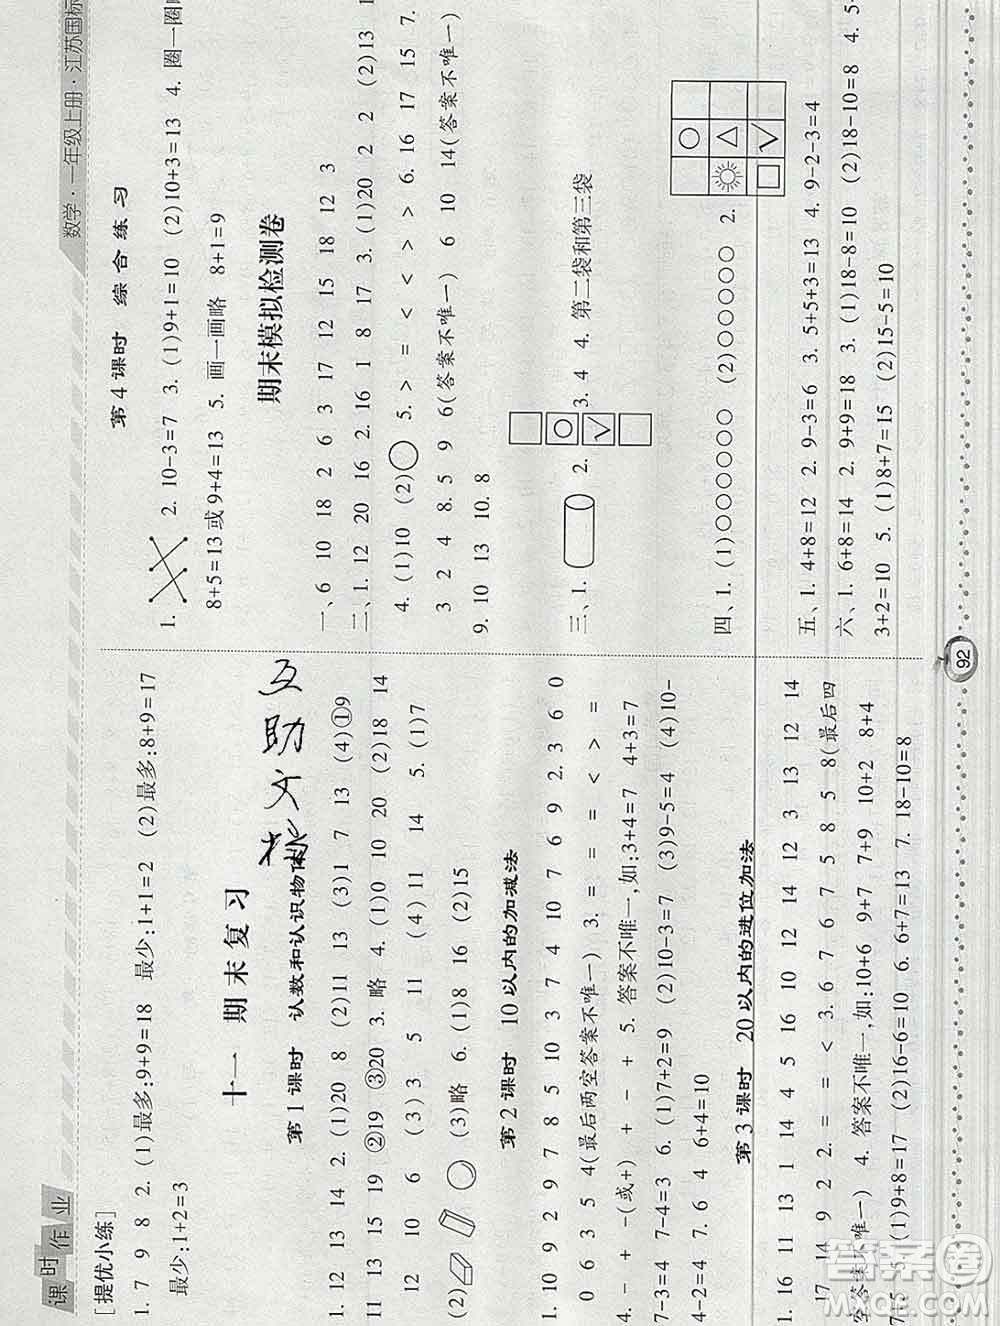 课时作业
[提优小练]
1. 7 9 8 2. (1)最多:9+9=18 最少:1+1=2 (2)最多:8+9=17
最少:1+2=3
十一 期末复习
第1课时 认数和认识物体
1. 12 13 14 2. (1)20 8 (2)11 13 (3)1 7 13 (4)①9
②19 ③20 3. 略 4. (1)0 10 20 (2)18 14
11 13 15 19
12 10 6 (3)3 5 11 (4)11 14 5. (1)7
(2) (3)略 6. (1)8 16 (2)15
第2课时 10以内的加减法
1. 10 9 2 9 7 8 5 10 3 7 4 10 7 6 9 2. 3 6 0
0 6 3 5 4(最后两空答案不唯一) 3. = = = < > =
4. - + + -(或+) + - + 5. 答案不唯一,如:3+4=7 4+3=7
7-3=4 7-4=3 6. (1)7+2=9 (2)10-3=7 (3)9-5=4 (4)10-
4-2=4 7. 6 4 6+4=10
第3课时 20以内的进位加法
1. 16 11 13 1 14 4 5 16 10 12 14 12 3 13 12 14
17 14 9 2 2. = = < 3. 6 7 6 7 5 8 5 8(最后四
空答案不唯一) 4. 答案不唯一,如:10+6 9+7 7+9 10+2 8+4
7+5 5. (1)9+8=17 (2)16-6=10 6. 6+7=13 7. 18-10=8
互助
数学·一年级上册·江苏国标
第4课时 综合练习
1. 2. 10-3=7 3. (1)9+1=10 (2)10+3=13 4. 圈一圈略
8+5=13或9+4=13 5. 画一画略 8+1=9
期末模拟检测卷
一、6 10 18 2 6 3 17 12 15 18 12 3
二、1. 12 20 16 2. 16 1 8 17 3. (1)20 2 2 (2)13 1
4. (1)10 (2)○ 5. > = < < > > 6. 16 17 15 7.
3 2 4 8. 5 9 6(答案不唯一) 6 10 14(答案不唯一)
9. 10 13 10. 8
三、1. 2. 3. 4 4. 第二袋和第三袋
四、1. (1)○○○○○○○ (2)○○○○○○ 2.
五、1. 4+8=12 2. 9-3=6 3. 5+5+3=13 4. 9-2-3=4
六、1. 6+8=14 2. 9+9=18 3. (1)18-8=10 (2)18-10=8 4. 5-
3+2=10 5. (1)8+7=15 (2)15-5=10
92
答案圈
MXQE.COM